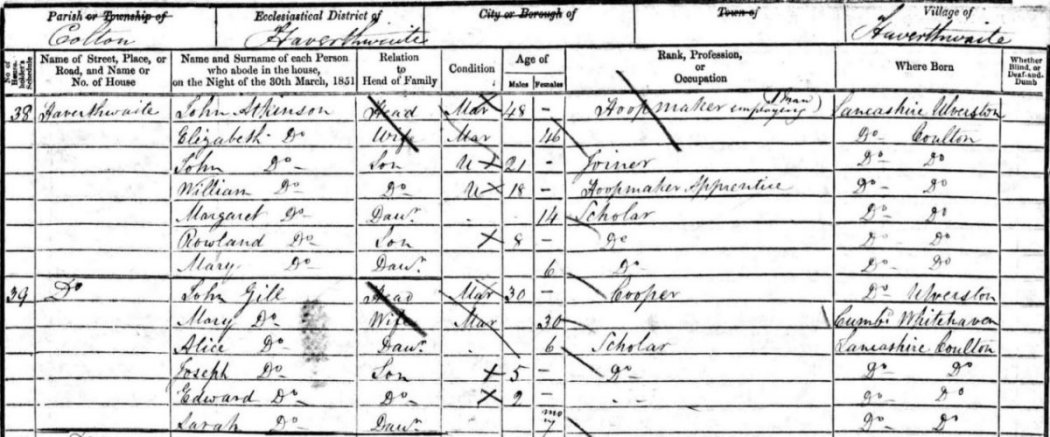 Parish or Township of Ecclesiastical District of City or Borough of Town of Village of
Colton Haverthwaite Haverthwaite
No. of House-holder's Schedule Name of Street, Place, or Road, and Name or No. of House Name and Surname of each Person who abode in the house, on the Night of the 30th March, 1851 Relation to Head of Family Condition Age of Males Females Rank, Profession, or Occupation Where Born Whether Blind, or Deaf-and-Dumb
38 Haverthwaite John Atkinson Head Mar 48 - Hoopmaker employing 1 man) Lancashire Ulverston
Elizabeth Do Wife Mar 46 Do Coulton
John Do Son U 21 - Joiner Do Do
William Do Do U 18 - Hoopmaker Apprentice Do Do
Margaret Do Dawr. 14 Scholar Do Do
Rowland Do Son 8 - Do Do Do
Mary Do Dawr. 6 Do Do Do
39 Do John Gill Head Mar 30 - Cooper Do Ulverston
Mary Do Wife Mar 30 Cumbd Whitehaven
Alice Do Dawr. 6 Scholar Lancashire Coulton
Joseph Do Son 5 - Do Do Do
Edward Do Do 2 - Do Do
Sarah Do Dawr. mo 7 Do Do